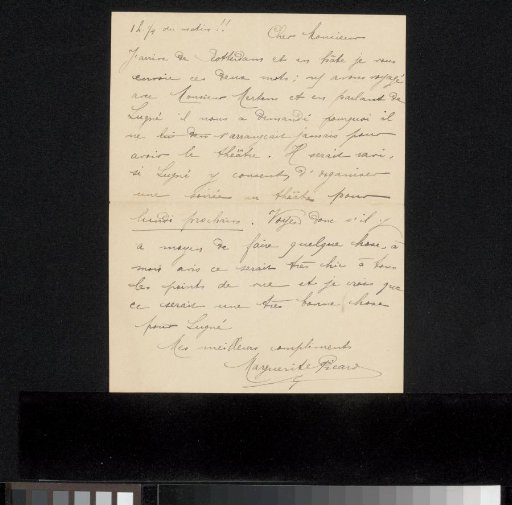 1 h 1/2 du matin !!
Cher Monsieur
J'arrive de Rotterdam et en hâte je vous
envoie ces deux mots ; ns avons voyagé
avec Monsieur Mertens et en parlant de
Lugné il nous a demandé pourquoi il
ne s'arrangeait jamais pour
avoir le théâtre. Il serait ravi,
si Lugné y consent, d'organiser
une soirée au théâtre pour
lundi prochain. Voyez donc s'il y
a moyen de faire quelque chose, à
mon avis ce serait très chic à tous
les points de vue et je crois que
ce serait une très bonne chose
pour Lugné
Mes meilleurs compliments
Marguerite Picard